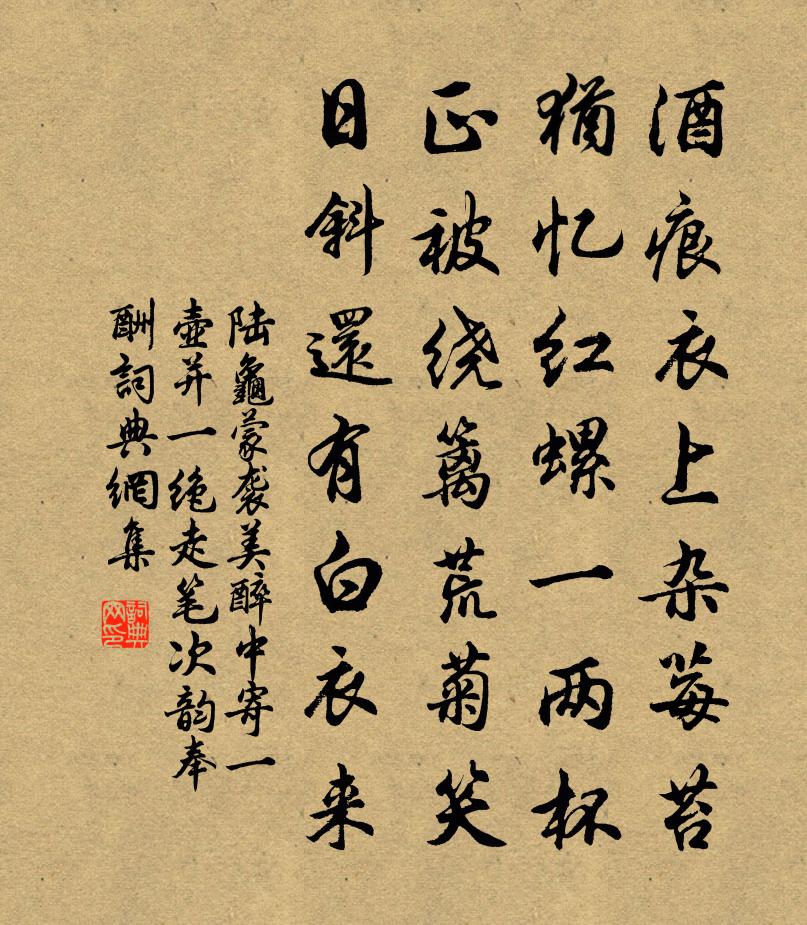 酒痕衣上杂莓苔
犹忆红螺一两杯
正被绕篱荒菊笑
日斜還有白衣来
陆龜蒙袭美醉中寄一
壶并一绝走笔次韵奉
酬詞典網集
詞典网印